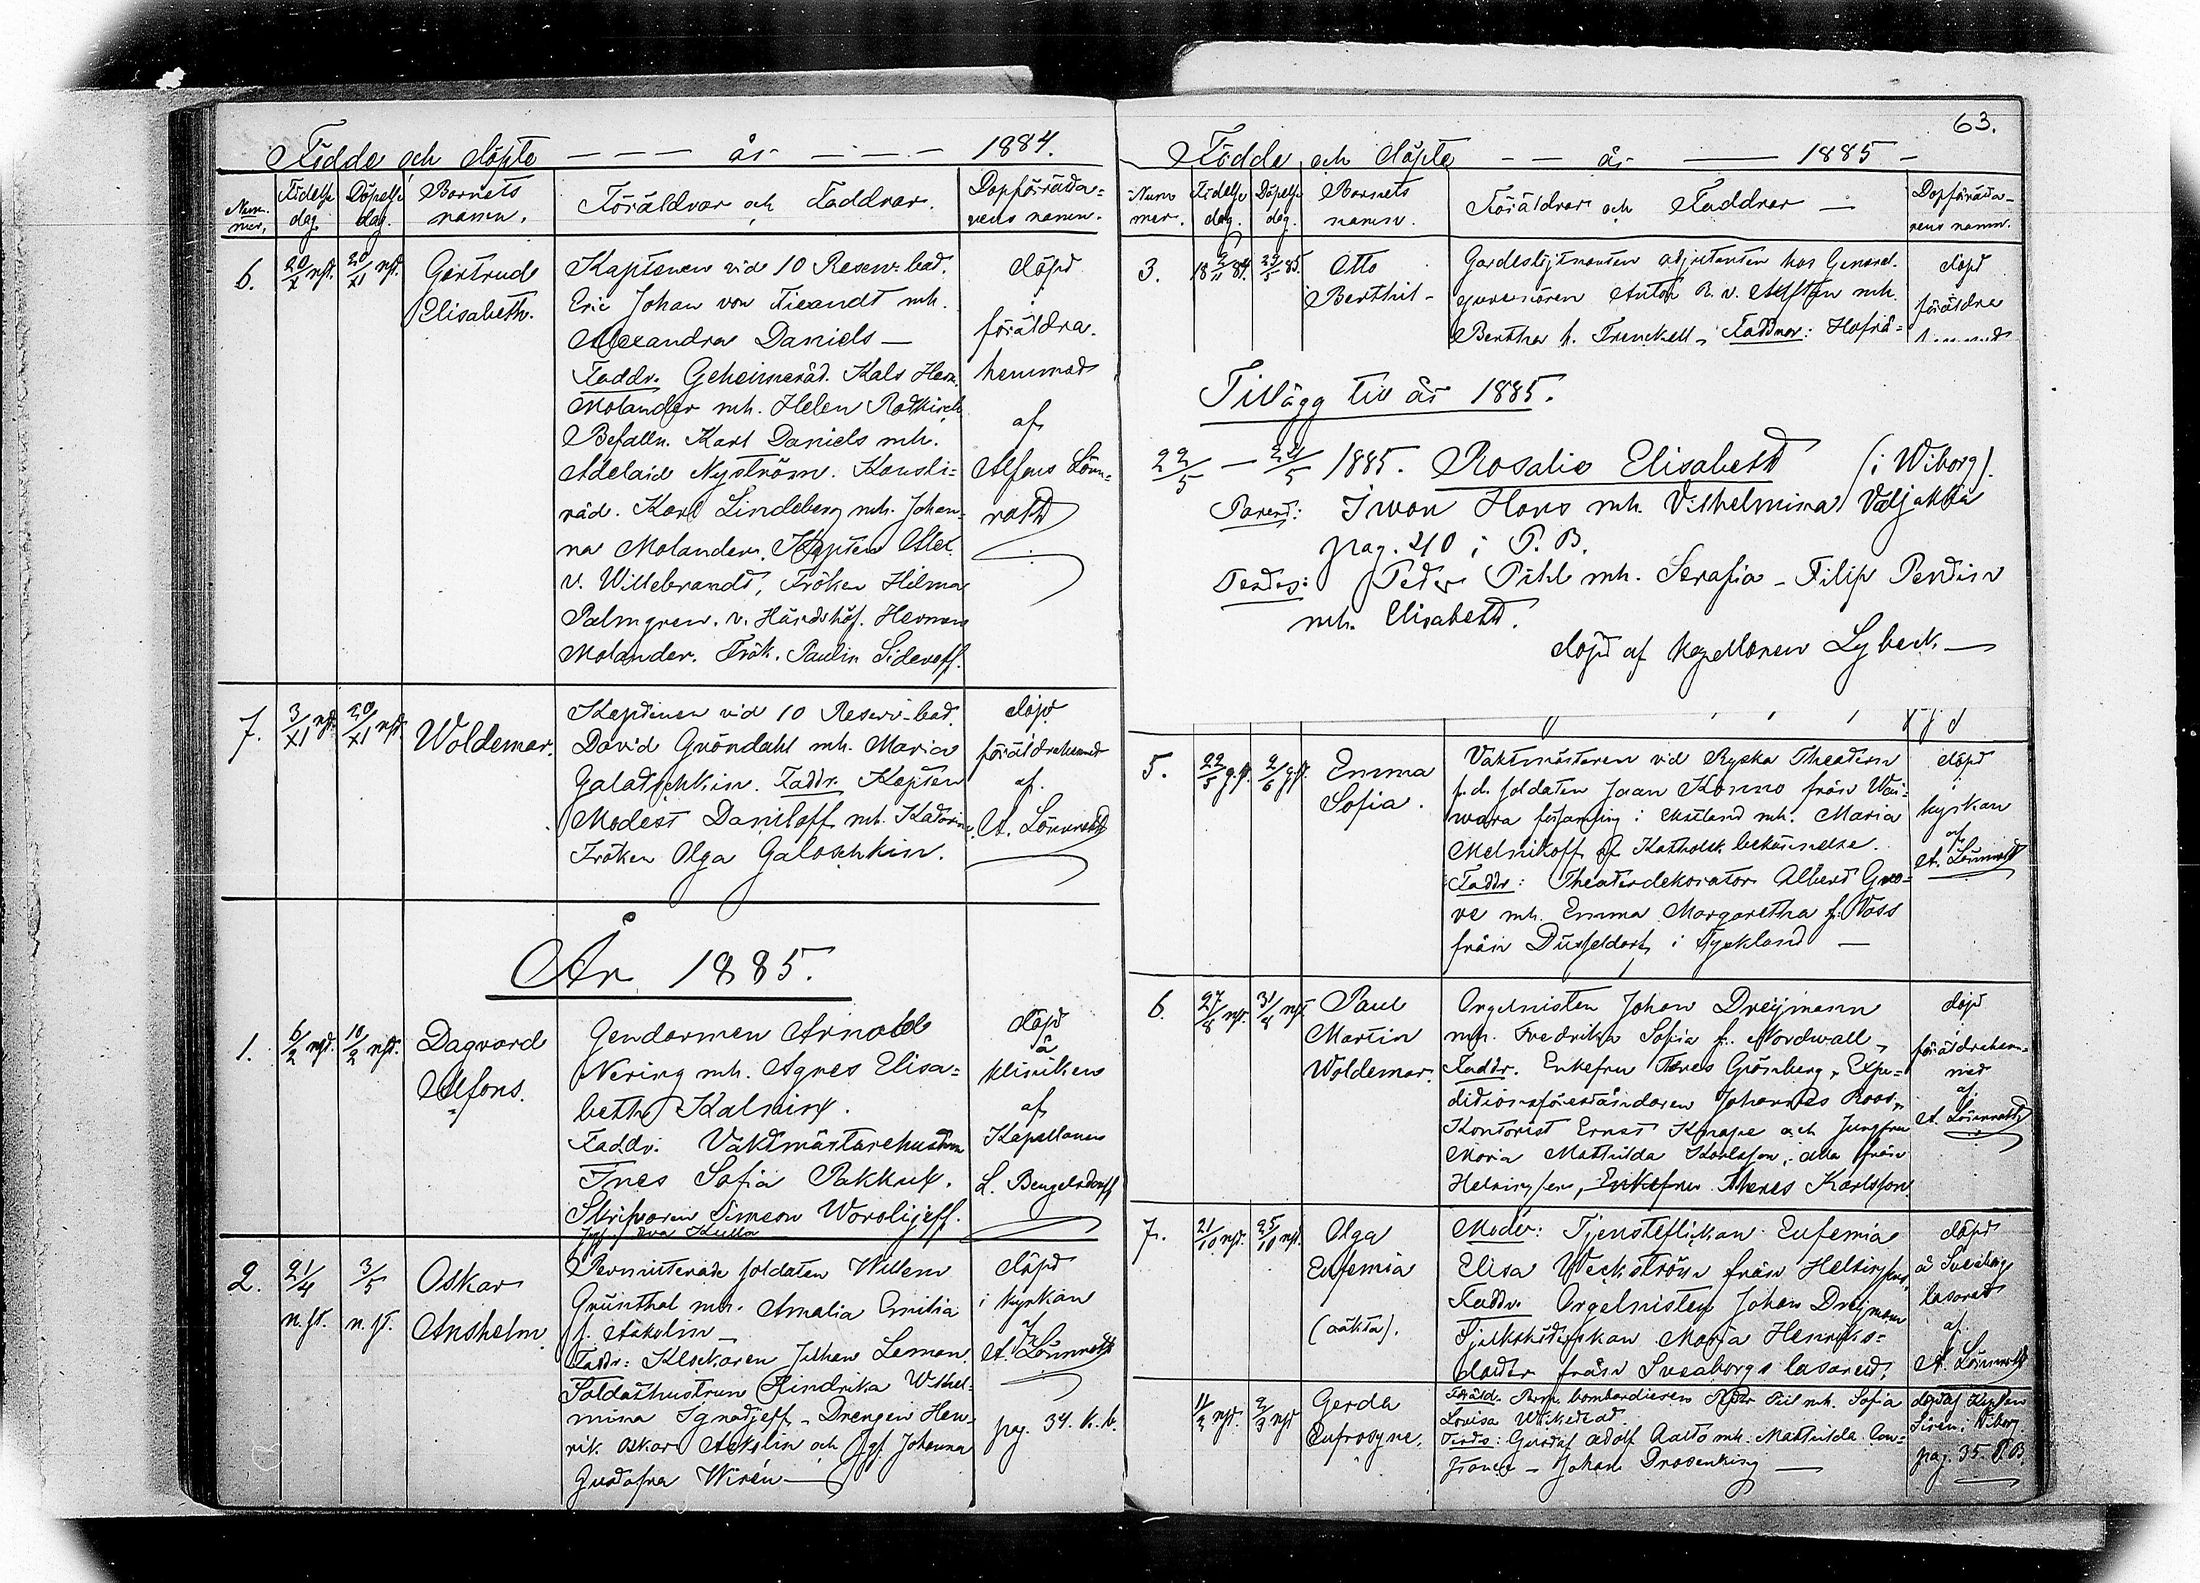 Födde och döpte — — — år — — — 1884.
Nummer. Födelsedag. Döpelsedag. Barnets namn. Föräldrar och Faddrar. Dopförrättarens namn.
6. 20/X nst. 20/XI nst. Gertrud Elisabeth.
Kaptenen vid 10 Reserv-bat.
Eric Johan von Fieandt mh.
Alexandra Daniels —
Faddr. Geheimeråd. Karl Herm.
Molander mh. Helen Rotkirch
Befallm. Karl Daniels mh.
Adelaid Nyström. Kansli=
råd. Karl Lindeberg mh. Johan=
na Molander. Kapten Alex.
v. Willebrandt, Fröken Hilma
Palmgren. v. Häradshöf. Herman
Molander. Frök. Paulin Sidereff.
döpt
i
föräldra-
hemmet
af
Alfons Lönn=
roth
7. 3/XI nst. 20/XI nst. Woldemar.
Kaptenen vid 10 Reserv-bat.
David Gröndahl mh. Maria
Galatschkin. Faddr. Kapten
Modest Daniloff mh. Katarina
Fröken Olga Galoschkin.
döpt i
föräldrahemmet
af
A. Lönnroth
År 1885.
1. 6/2 nst. 10/2 nst. Dagvard
Alfons.
Gendarmen Arnold
Nering mh. Agnes Elisa=
beth Kalning.
Faddr. Vaktmästarehustrun
Ines Sofia Pakkug.
Skrifvaren Simeon Worolijeff.
Jgf. Eva Kulla
döpt
å
kliniken
af
Kapellanen
L. Bengelsdorff
2. 21/4 n.st. 3/5 n.st. Oskar
Anshelm
Permitterade soldaten Willem
Grünthal mh. Amalia Emilia
f. Askolin —
Faddr: Klockaren Johan Leman.
Soldathustrun Hindrika Wilhel=
mina Ignatjeff — Drengen Hen=
rik Oskar Askolin och Jgf. Johanna
Gustafva Wirén —
döpt
i kyrkan
af
A. Lönnroth
pag. 34. K.b.
63.
Födde och döpte — — år — 1885 —
Nummer. Födelsedag. Döpelsedag. Barnets namn. Föräldrar och Faddrar — Dopförrättarens namn.
3. 18 2/11 84. 24/5 85. Otto
Berthil —
Gardeslöjtnanten adjutanten hos General-
guvernören Anton R. v. Alfthan mh.
Bertha f. Frenckell — Faddrar: Hofrå=
döpt
i
föräldra
Tillägg till år 1885.
22/5 — 24/5 1885. Rosalie Elisabeth (i Wiborg).
Parent: Iwan Hans mh. Vilhelmina Väljakka
pag. 210 i P. B.
Testes: Peder Pihl mh. Serafia — Filip Pendin
mh. Elisabeth.
döpt af kapellanen Lybeck —
5. 22/5 g.st. 2/6 g.st. Emma
Sofia.
Vaktmästaren vid Ryska Theatern
f.d. soldaten Jaan Konno från Wai=
wara församling i Estland mh. Maria
Melnikoff af Katholsk bekännelse.
Faddr: Theaterdekorator Albert Gro=
ve mh. Emma Margaretha f. Voss
från Düsseldorf i Tyskland —
döpt
i
kyrkan
af
A. Lönnroth
6. 27/8 nst. 31/8 nst. Paul
Martin
Woldemar.
Orgelnisten Johan Dreijmann
mh. Fredrika Sofia f. Nordwall —
Faddr. Enkefru Theres Grönberg, Expe=
ditionsföreståndaren Johannes Roos,
Kontorist Ernst Knape och Jungfru
Maria Mathilda Karlsson, alla från
Helsingfors, Enkefru Theres Karlsson
döpt
i
föräldrahem=
met
af
A. Lönnroth
7. 21/10 nst. 25/10 nst. Olga
Eufemia
(oäkta).
Moder: Tjensteflickan Eufemia
Elisa Weckström från Helsingfors
Faddr. Orgelnisten Johan Dreijmann
Sjuksköterskan Maria Henriks=
dotter från Sveaborgs lasarett.
döpt
å Sveaborgs
lasarett
af
A. Lönnroth
11/2 nst. 2/3 nst. Gerda
Eufrosyne.
Föräld. bombardieren Peter Pil mh. Sofia
Lovisa Wikstedt
Testes: Gustaf Adolf Aalto mh. Mathilda Con=
stance — Johan Drosenking —
döpt af Kapten
Sirén i Viborg
pag. 35. P.B.